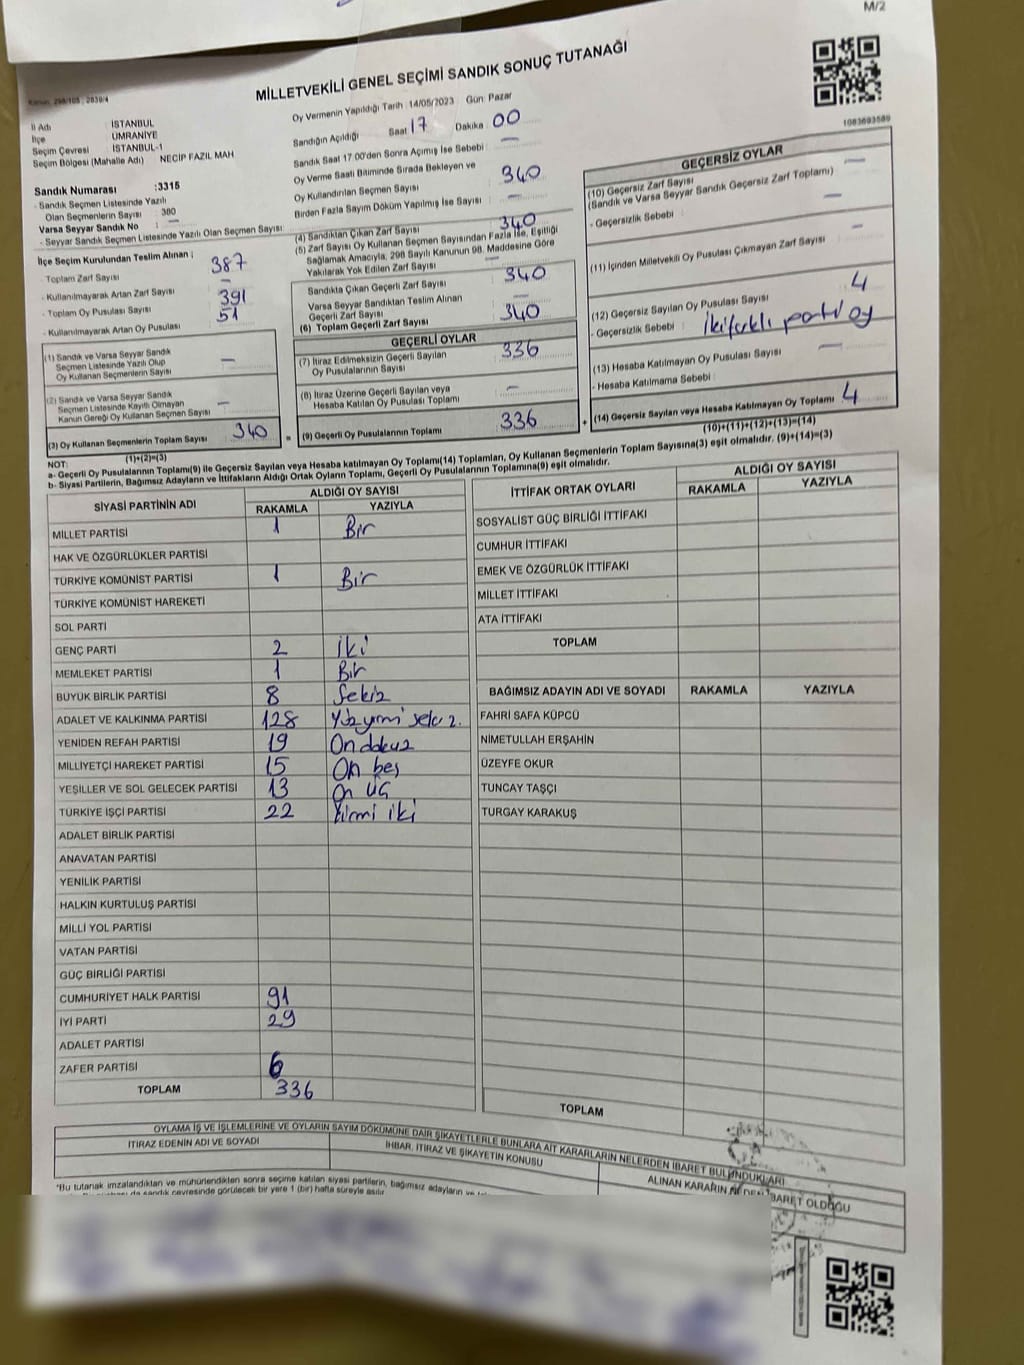 M/2
Kanun: 298/105 ; 2839/4
MİLLETVEKİLİ GENEL SEÇİMİ SANDIK SONUÇ TUTANAĞI
1083693589
İl Adı : İSTANBUL
İlçe : ÜMRANİYE
Seçim Çevresi : İSTANBUL-1
Seçim Bölgesi (Mahalle Adı) NECİP FAZIL MAH
Sandık Numarası :3315
- Sandık Seçmen Listesinde Yazılı
Olan Seçmenlerin Sayısı : 380
Varsa Seyyar Sandık No : —
- Seyyar Sandık Seçmen Listesinde Yazılı Olan Seçmen Sayısı:
İlçe Seçim Kurulundan Teslim Alınan ;
- Toplam Zarf Sayısı 387
- Kullanılmayarak Artan Zarf Sayısı —
- Toplam Oy Pusulası Sayısı 391
- Kullanılmayarak Artan Oy Pusulası 51
(1) Sandık ve Varsa Seyyar Sandık
Seçmen Listesinde Yazılı Olup
Oy Kullanan Seçmenlerin Sayısı —
(2) Sandık ve Varsa Seyyar Sandık
Seçmen Listesinde Kayıtlı Olmayan
Kanun Gereği Oy Kullanan Seçmen Sayısı —
(3) Oy Kullanan Seçmenlerin Toplam Sayısı 340
(1)+(2)=(3)
Oy Vermenin Yapıldığı Tarih :14/05/2023 Gün: Pazar
Sandığın Açıldığı Saat 17 Dakika 00
Sandık Saat 17.00'den Sonra Açımış İse Sebebi : —
Oy Verme Saati Bitiminde Sırada Bekleyen ve
Oy Kullandırılan Seçmen Sayısı 340
Birden Fazla Sayım Döküm Yapılmış İse Sayısı : —
(4) Sandıktan Çıkan Zarf Sayısı 340
(5) Zarf Sayısı Oy Kullanan Seçmen Sayısından Fazla İse, Eşitliği
Sağlamak Amacıyla; 298 Sayılı Kanunun 98. Maddesine Göre
Yakılarak Yok Edilen Zarf Sayısı —
Sandıkta Çıkan Geçerli Zarf Sayısı 340
Varsa Seyyar Sandıktan Teslim Alınan
Geçerli Zarf Sayısı —
(6) Toplam Geçerli Zarf Sayısı 340
GEÇERLİ OYLAR
(7) İtiraz Edilmeksizin Geçerli Sayılan
Oy Pusulalarının Sayısı 336
(8) İtiraz Üzerine Geçerli Sayılan veya
Hesaba Katılan Oy Pusulası Toplamı —
= (9) Geçerli Oy Pusulalarının Toplamı 336 +
GEÇERSİZ OYLAR
(10) Geçersiz Zarf Sayısı —
(Sandık ve Varsa Seyyar Sandık Geçersiz Zarf Toplamı)
- Geçersizlik Sebebi : —
(11) İçinden Milletvekili Oy Pusulası Çıkmayan Zarf Sayısı —
(12) Geçersiz Sayılan Oy Pusulası Sayısı 4
- Geçersizlik Sebebi : İki farklı parti oy
(13) Hesaba Katılmayan Oy Pusulası Sayısı —
- Hesaba Katılmama Sebebi :
(14) Geçersiz Sayılan veya Hesaba Katılmayan Oy Toplamı 4
(10)+(11)+(12)+(13)=(14)
NOT:
a- Geçerli Oy Pusulalarının Toplamı(9) ile Geçersiz Sayılan veya Hesaba katılmayan Oy Toplamı(14) Toplamları, Oy Kullanan Seçmenlerin Toplam Sayısına(3) eşit olmalıdır. (9)+(14)=(3)
b- Siyasi Partilerin, Bağımsız Adayların ve İttifakların Aldığı Ortak Oyların Toplamı, Geçerli Oy Pusulalarının Toplamına(9) eşit olmalıdır.
SİYASİ PARTİNİN ADI ALDIĞI OY SAYISI
RAKAMLA YAZIYLA
MİLLET PARTİSİ 1 Bir
HAK VE ÖZGÜRLÜKLER PARTİSİ
TÜRKİYE KOMÜNİST PARTİSİ 1 Bir
TÜRKİYE KOMÜNİST HAREKETİ
SOL PARTİ
GENÇ PARTİ 2 İki
MEMLEKET PARTİSİ 1 Bir
BÜYÜK BİRLİK PARTİSİ 8 Sekiz
ADALET VE KALKINMA PARTİSİ 128 Yüzyirmi sekiz.
YENİDEN REFAH PARTİSİ 19 On dokuz
MİLLİYETÇİ HAREKET PARTİSİ 15 On beş
YEŞİLLER VE SOL GELECEK PARTİSİ 13 On üç
TÜRKİYE İŞÇİ PARTİSİ 22 Yirmi iki
ADALET BİRLİK PARTİSİ
ANAVATAN PARTİSİ
YENİLİK PARTİSİ
HALKIN KURTULUŞ PARTİSİ
MİLLİ YOL PARTİSİ
VATAN PARTİSİ
GÜÇ BİRLİĞİ PARTİSİ
CUMHURİYET HALK PARTİSİ 91
İYİ PARTİ 29
ADALET PARTİSİ
ZAFER PARTİSİ 6
TOPLAM 336
İTTİFAK ORTAK OYLARI ALDIĞI OY SAYISI
RAKAMLA YAZIYLA
SOSYALİST GÜÇ BİRLİĞİ İTTİFAKI
CUMHUR İTTİFAKI
EMEK VE ÖZGÜRLÜK İTTİFAKI
MİLLET İTTİFAKI
ATA İTTİFAKI
TOPLAM
BAĞIMSIZ ADAYIN ADI VE SOYADI RAKAMLA YAZIYLA
FAHRİ SAFA KÜPCÜ
NİMETULLAH ERŞAHİN
ÜZEYFE OKUR
TUNCAY TAŞÇI
TURGAY KARAKUŞ
TOPLAM
OYLAMA İŞ VE İŞLEMLERİNE VE OYLARIN SAYIM DÖKÜMÜNE DAİR ŞİKAYETLERLE BUNLARA AİT KARARLARIN NELERDEN İBARET BULUNDUKLARI
İTİRAZ EDENİN ADI VE SOYADI
İHBAR, İTİRAZ VE ŞİKAYETİN KONUSU
ALINAN KARARIN NEDEN İBARET OLDUĞU
"Bu tutanak imzalandıktan ve mühürlendikten sonra seçime katılan siyasi partilerin, bağımsız adayların ve
da sandık çevresinde görülecek bir yere 1 (bir) hafta süreyle asılır.